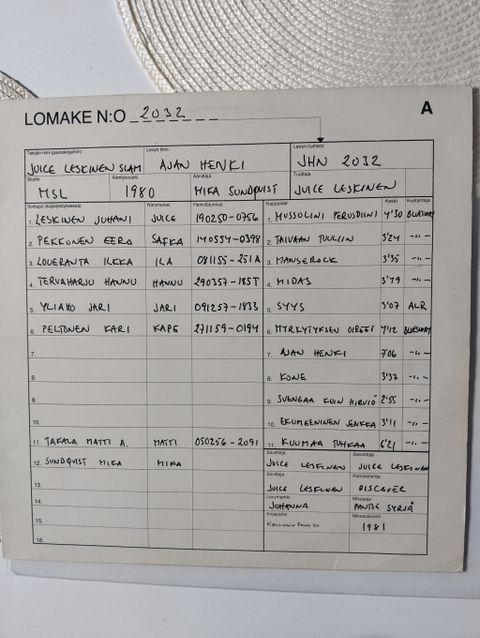 LOMAKE N:O 2032
A
Taiteilijan nimi
Levyn nimi
Levyn numero
JUICE LESKINEN SLAM AJAN HENKI JHN 2032
Studio Äänitysvuosi Äänittäjä Tuottaja
MSL 1980 MIKA SUNDQVIST JUICE LESKINEN
Nimimerkki Henkilötunnus Kappaleet Kesto Kustantaja
1. LESKINEN JUHANI JUICE 190250-0756 1. MUSSOLINI PERUSDIINI 4'30 BLUEBIRD
2. PEKKONEN EERO SAFKA 140554-0398 2. TAIVAAN TUULIIN 3'24 -"-
3. LOUERANTA ILKKA ILA 081155-251A 3. MANSEROCK 3'35 -"-
4. TERVAHARJU HANNU HANNU 290357-185T 4. MIDAS 3'79 -"-
5. YLIAHO JARI JARI 091257-1833 5. SYYS 3'07 ALR
6. PELTONEN KARI KAPE 271159-0194 6. MYRKYTYKSEN OIREET 4'12 BLUEBIRD
7. 7. AJAN HENKI 7'06 -"-
8. 8. KONE 3'37 -"-
9. 9. SVENGAA KUIN HIRVIÖ 2'55 -"-
10. 10. EKUMEENINEN JENKKA 3'11 -"-
11. TAKALA MATTI A. MATTI 050256-2091 11. KUUMAA TUHKAA 6'21 -"-
Säveltäjä Sanoittaja
12. SUNDQVIST MIKA MIKA JUICE LESKINEN JUICE LESKINEN
Sovittaja
13. JUICE LESKINEN DISCOVER
Levymerkki Miksaaja
14. JOHANNA PANTSE SYRJÄ
Kirjapaino
15. 1981
16.